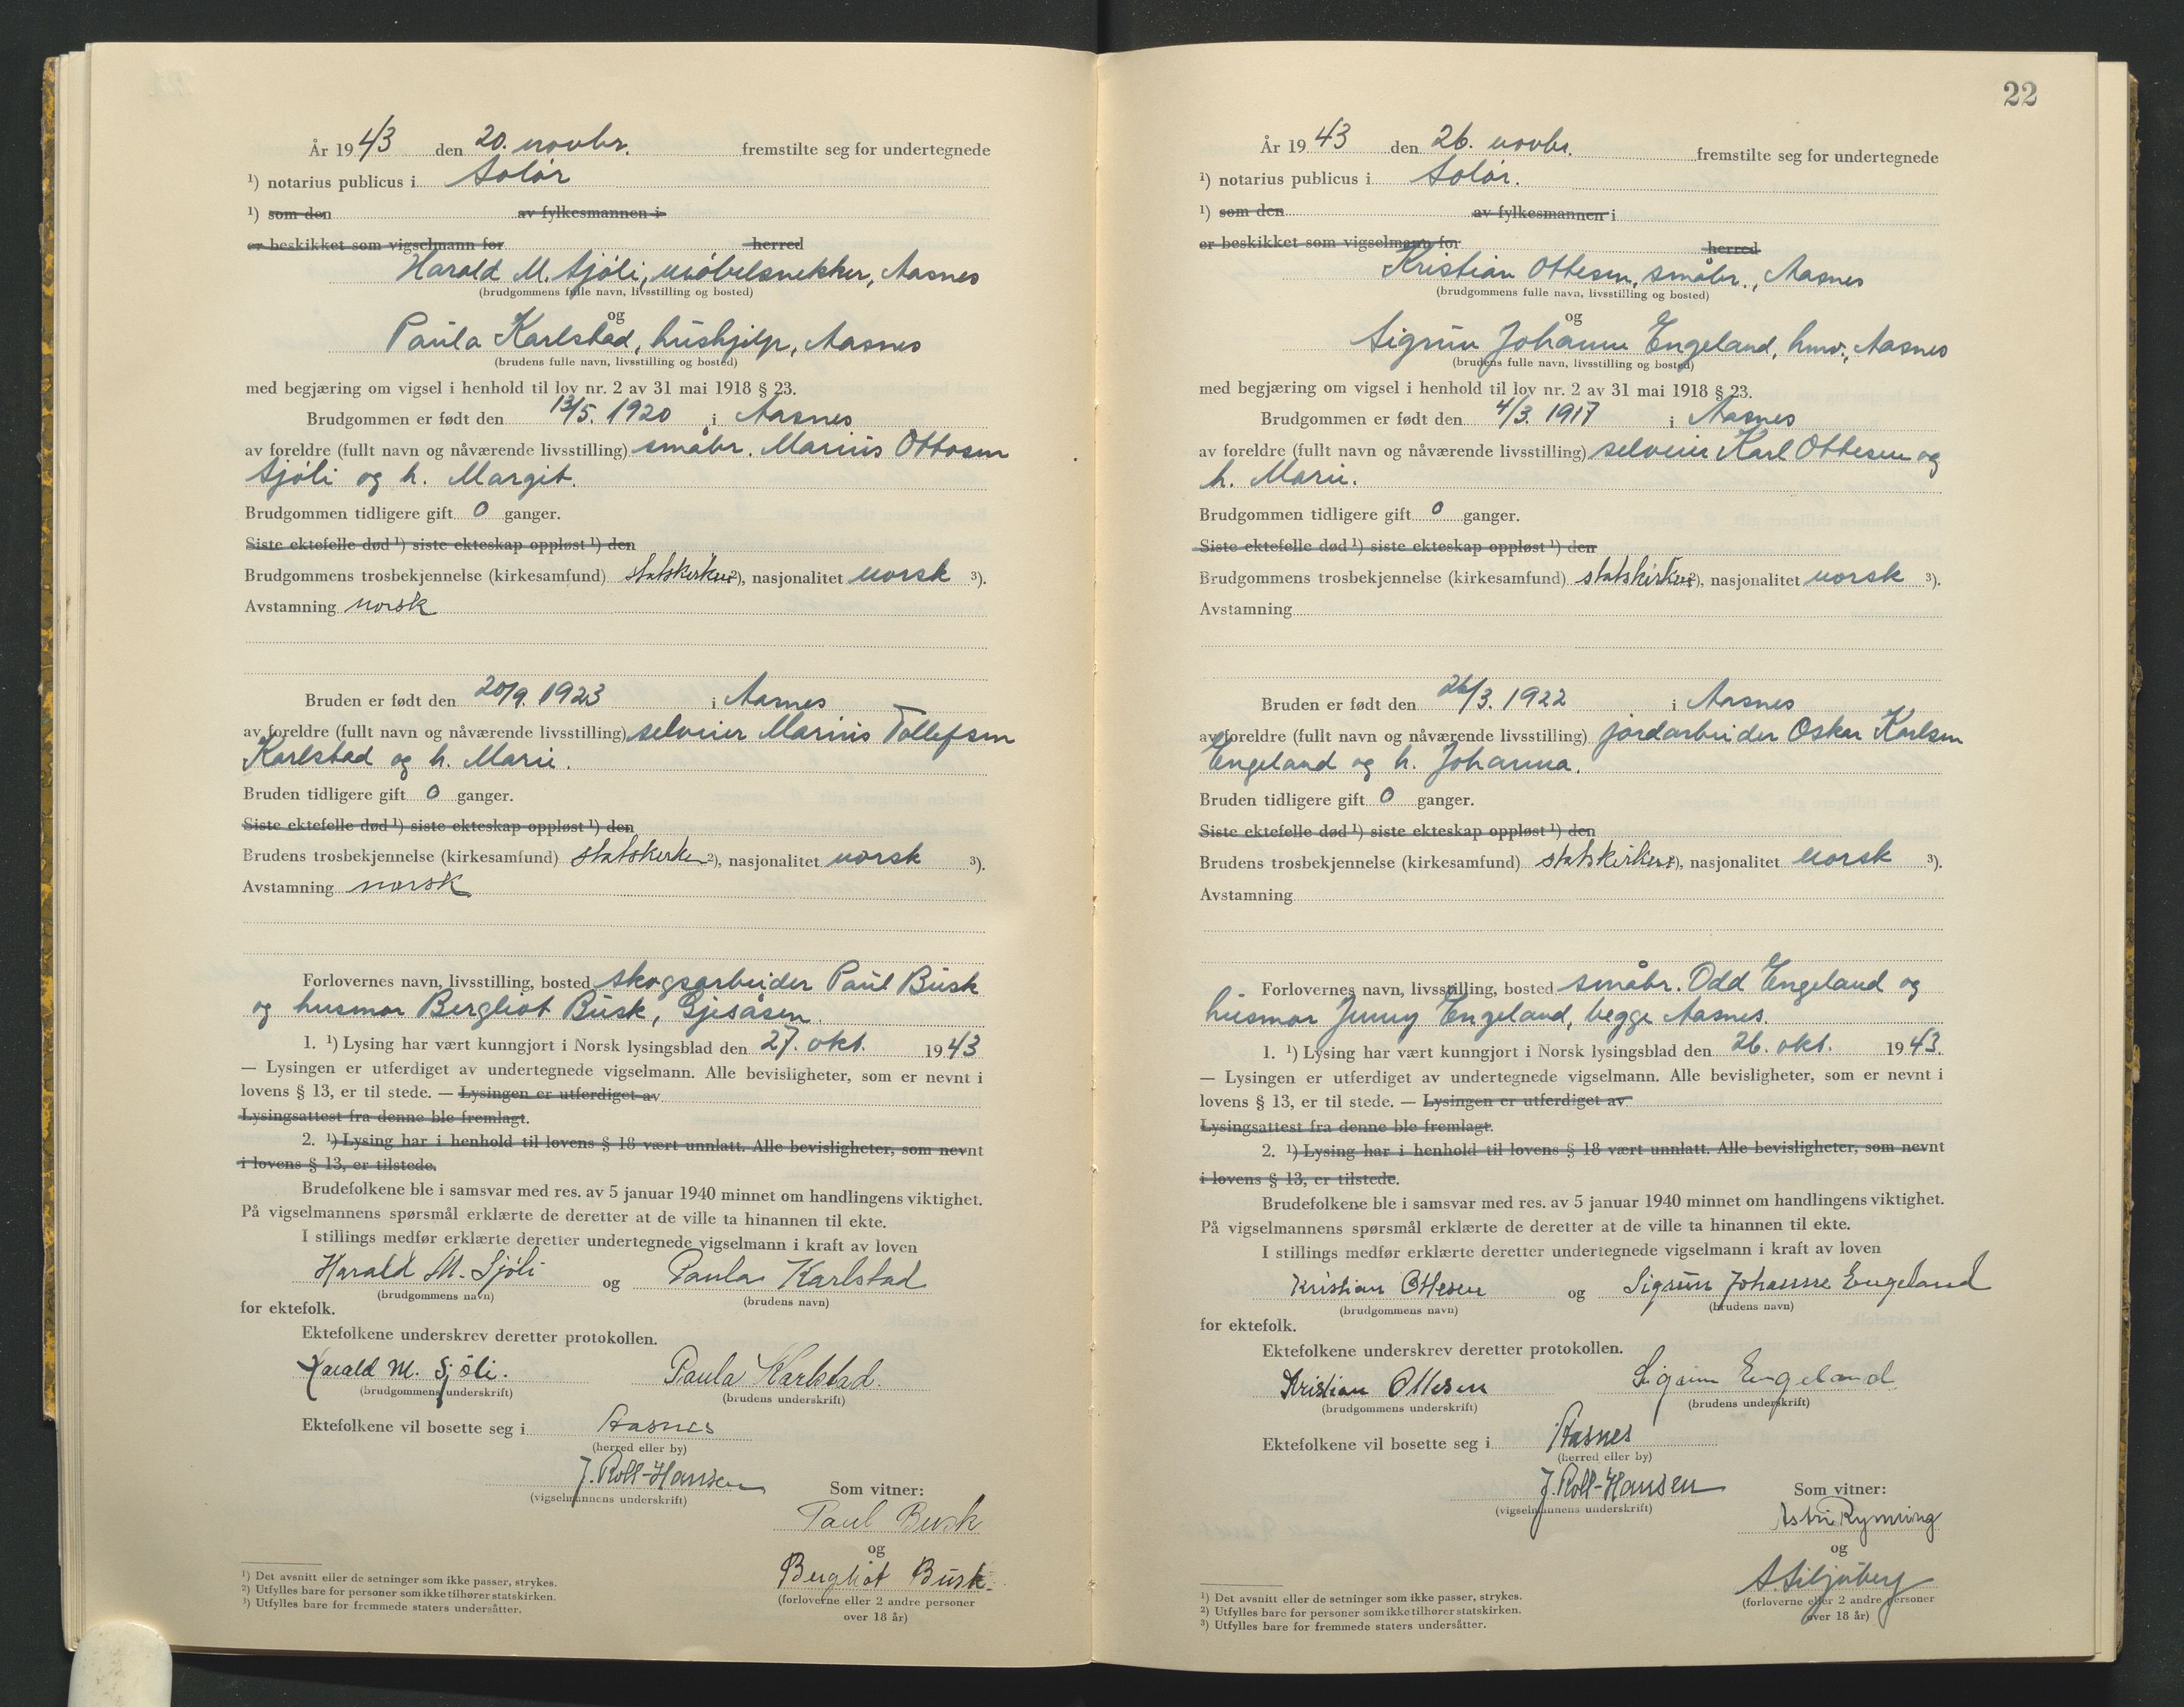 År 1943 den 20. novbr. fremstilte seg for undertegnede
¹) notarius publicus i Solør
¹) som den av fylkesmannen i
er beskikket som vigselmann for herred
Harald M. Sjøli, møbelsnekker, Aasnes
(brudgommens fulle navn, livsstilling og bosted)
og
Paula Karlstad, hushjelp, Aasnes
(brudens fulle navn, livsstilling og bosted)
med begjæring om vigsel i henhold til lov nr. 2 av 31 mai 1918 § 23.
Brudgommen er født den 13/5. 1920 i Aasnes
av foreldre (fullt navn og nåværende livsstilling) småbr. Marius Ottosen
Sjøli og h. Margit.
Brudgommen tidligere gift 0 ganger.
Siste ektefelle død ¹) siste ekteskap oppløst ¹) den
Brudgommens trosbekjennelse (kirkesamfund) statskirken ²), nasjonalitet norsk ³).
Avstamning norsk
Bruden er født den 20/9. 1923 i Aasnes
av foreldre (fullt navn og nåværende livsstilling) selveier Marius Tollefsen
Karlstad og h. Marie.
Bruden tidligere gift 0 ganger.
Siste ektefelle død ¹) siste ekteskap oppløst ¹) den
Brudens trosbekjennelse (kirkesamfund) statskirken ²), nasjonalitet norsk ³).
Avstamning norsk
Forlovernes navn, livsstilling, bosted skogsarbeider Paul Busk
og husmor Bergliot Busk, Gjesåsen.
1. ¹) Lysing har vært kunngjort i Norsk lysingsblad den 27. okt. 1943
— Lysingen er utferdiget av undertegnede vigselmann. Alle bevisligheter, som er nevnt i
lovens § 13, er til stede. — Lysingen er utferdiget av
Lysingsattest fra denne ble fremlagt.
2. ¹) Lysing har i henhold til lovens § 18 vært unnlatt. Alle bevisligheter, som nevnt
i lovens § 13, er tilstede.
Brudefolkene ble i samsvar med res. av 5 januar 1940 minnet om handlingens viktighet.
På vigselmannens spørsmål erklærte de deretter at de ville ta hinannen til ekte.
I stillings medfør erklærte deretter undertegnede vigselmann i kraft av loven
Harald M. Sjøli og Paula Karlstad
(brudgommens navn) (brudens navn)
for ektefolk.
Ektefolkene underskrev deretter protokollen.
Harald M. Sjöli. Paula Karlstad.
(brudgommens underskrift) (brudens underskrift)
Ektefolkene vil bosette seg i Aasnes
(herred eller by)
J. Roll-Hansen
(vigselmannens underskrift)
Som vitner:
Paul Busk
og
Bergliot Busk.
(forloverne eller 2 andre personer
over 18 år)
¹) Det avsnitt eller de setninger som ikke passer, strykes.
²) Utfylles bare for personer som ikke tilhører statskirken.
³) Utfylles bare for fremmede staters undersåtter.
22
År 1943 den 26. novbr. fremstilte seg for undertegnede
¹) notarius publicus i Solør.
¹) som den av fylkesmannen i
er beskikket som vigselmann for herred
Kristian Ottesen, småbr., Aasnes
(brudgommens fulle navn, livsstilling og bosted)
og
Sigrun Johanne Engeland, hmv., Aasnes
(brudens fulle navn, livsstilling og bosted)
med begjæring om vigsel i henhold til lov nr. 2 av 31 mai 1918 § 23.
Brudgommen er født den 4/3. 1917 i Aasnes
av foreldre (fullt navn og nåværende livsstilling) selveier Karl Ottesen og
h. Marie.
Brudgommen tidligere gift 0 ganger.
Siste ektefelle død ¹) siste ekteskap oppløst ¹) den
Brudgommens trosbekjennelse (kirkesamfund) statskirken ²), nasjonalitet norsk ³).
Avstamning
Bruden er født den 26/3. 1922 i Aasnes
av foreldre (fullt navn og nåværende livsstilling) jordarbeider Oskar Karlsen
Engeland og h. Johanna.
Bruden tidligere gift 0 ganger.
Siste ektefelle død ¹) siste ekteskap oppløst ¹) den
Brudens trosbekjennelse (kirkesamfund) statskirken ²), nasjonalitet norsk ³).
Avstamning
Forlovernes navn, livsstilling, bosted småbr. Odd Engeland og
husmor Jenny Engeland, begge Aasnes.
1. ¹) Lysing har vært kunngjort i Norsk lysingsblad den 26. okt. 1943.
— Lysingen er utferdiget av undertegnede vigselmann. Alle bevisligheter, som er nevnt i
lovens § 13, er til stede. — Lysingen er utferdiget av
Lysingsattest fra denne ble fremlagt.
2. ¹) Lysing har i henhold til lovens § 18 vært unnlatt. Alle bevisligheter, som nevnt
i lovens § 13, er tilstede.
Brudefolkene ble i samsvar med res. av 5 januar 1940 minnet om handlingens viktighet.
På vigselmannens spørsmål erklærte de deretter at de ville ta hinannen til ekte.
I stillings medfør erklærte deretter undertegnede vigselmann i kraft av loven
Kristian Ottesen og Sigrun Johanne Engeland
(brudgommens navn) (brudens navn)
for ektefolk.
Ektefolkene underskrev deretter protokollen.
Kristian Ottesen Sigrun Engeland
(brudgommens underskrift) (brudens underskrift)
Ektefolkene vil bosette seg i Aasnes
(herred eller by)
J. Roll-Hansen
(vigselmannens underskrift)
Som vitner:
Astri Rymring
og
A. Siljuberg
(forloverne eller 2 andre personer
over 18 år)
¹) Det avsnitt eller de setninger som ikke passer, strykes.
²) Utfylles bare for personer som ikke tilhører statskirken.
³) Utfylles bare for fremmede staters undersåtter.